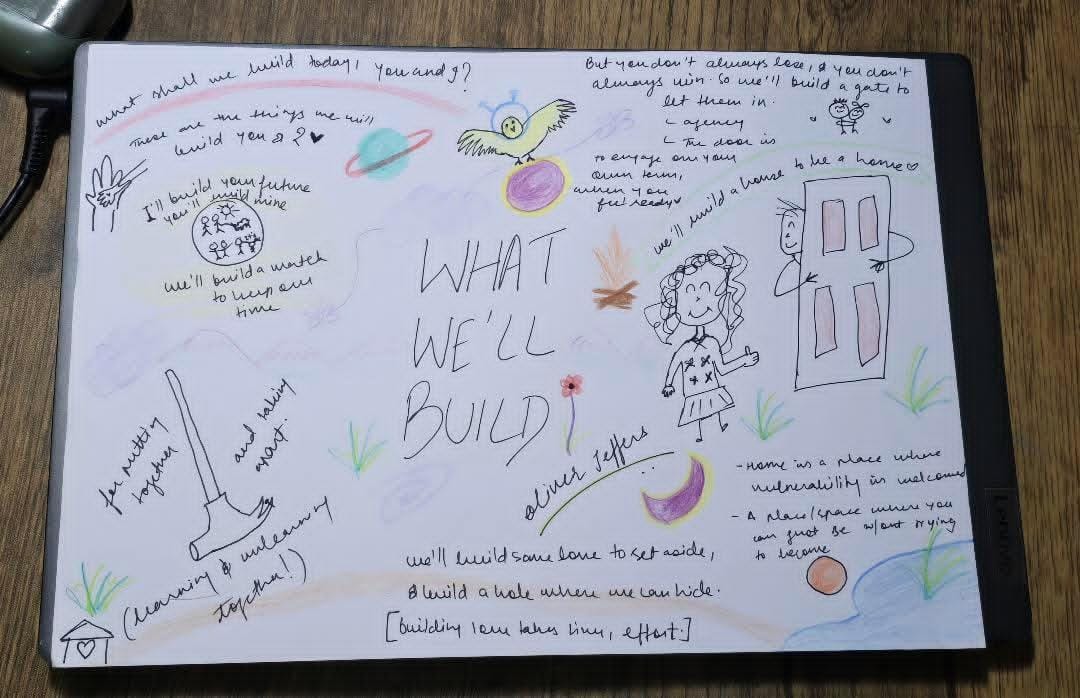 What shall we build today, you and I?
These are the things we will
build you & I ♥
I'll build your future
you'll build mine
we'll build a watch
to keep our
time
But you don't always lose, & you don't
always win. So we'll build a gate to
let them in.
- agency
- The door is
to engage on your
own terms,
when you
feel ready
we'll build a house to be a home
WHAT
WE'LL
BUILD
Oliver Jeffers
for putting
together
and taking
apart.
(learning & unlearning
together!)
- Home is a place where
vulnerability is welcomed
- A place/space where you
can just Be w/out trying
to become
we'll build some love to set aside,
& build a hole where we can hide.
[building love takes time, effort.]
Lenovo